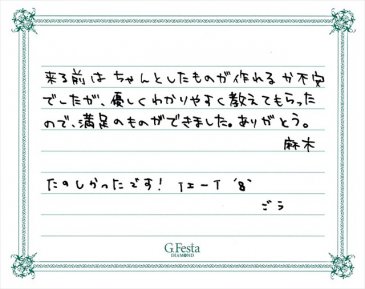 来る前は ちゃんとしたものが作れるか不安
でしたが、優しくわかりやすく教えてもらった
ので、満足のものができました。ありがとう。
麻木
たのしかったです！
ごう
G.Festa
DIAMOND